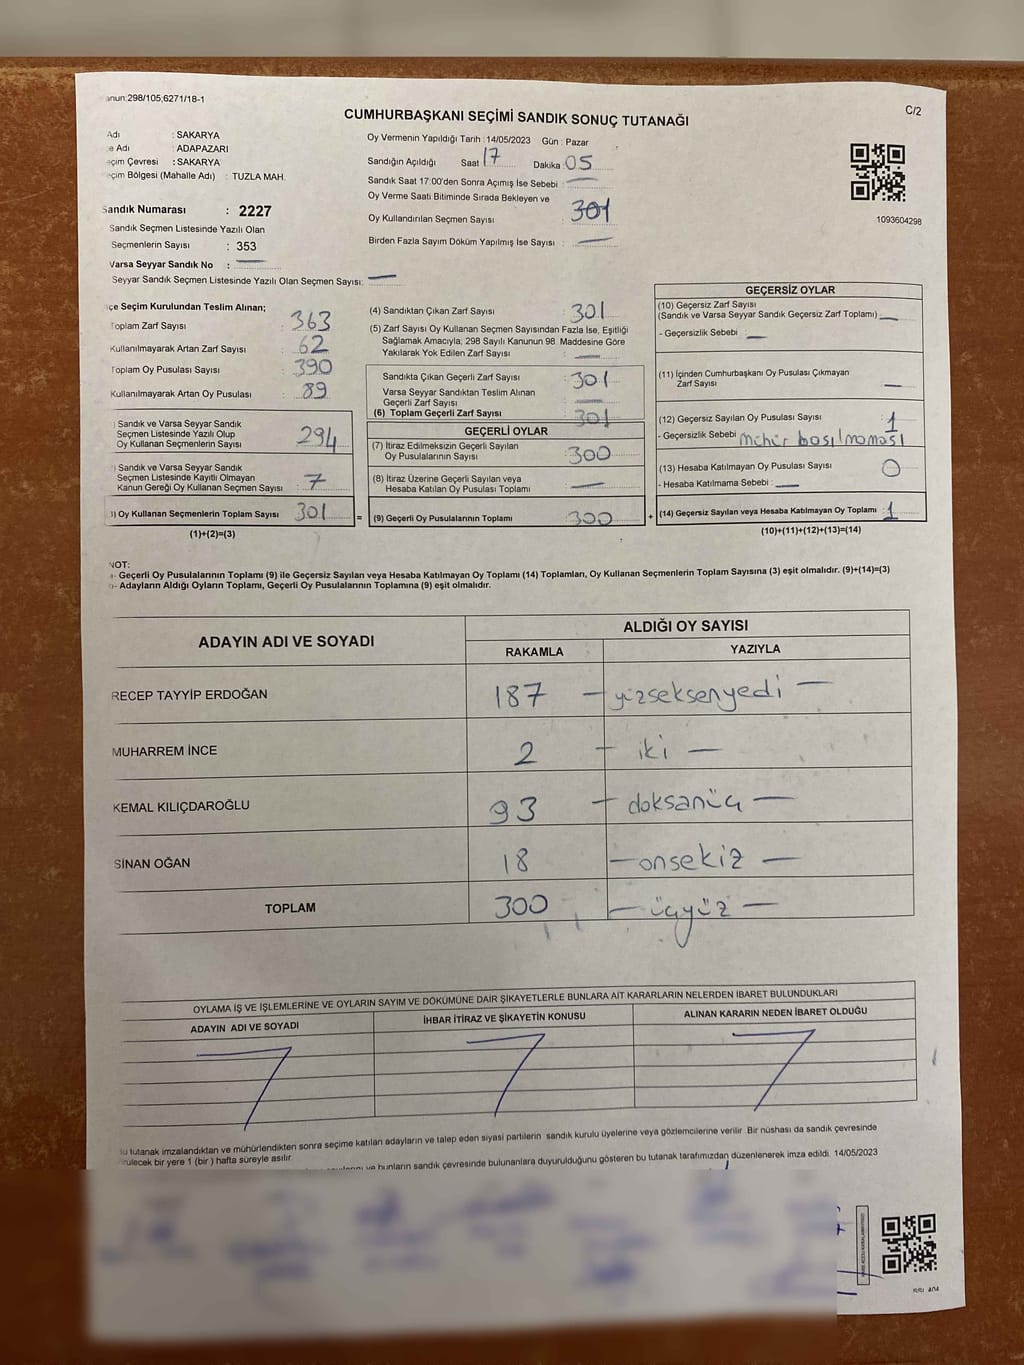 anun,298/105,6271/18-1
C/2
CUMHURBAŞKANI SEÇİMİ SANDIK SONUÇ TUTANAĞI
Adı : SAKARYA
e Adı : ADAPAZARI
eçim Çevresi : SAKARYA
eçim Bölgesi (Mahalle Adı) : TUZLA MAH.
Sandık Numarası : 2227
Sandık Seçmen Listesinde Yazılı Olan
Seçmenlerin Sayısı : 353
Varsa Seyyar Sandık No :
Seyyar Sandık Seçmen Listesinde Yazılı Olan Seçmen Sayısı:
Oy Vermenin Yapıldığı Tarih : 14/05/2023 Gün : Pazar
Sandığın Açıldığı Saat 17 Dakika : 05
Sandık Saat 17:00'den Sonra Açımış İse Sebebi :
Oy Verme Saati Bitiminde Sırada Bekleyen ve
Oy Kullandırılan Seçmen Sayısı : 301
Birden Fazla Sayım Döküm Yapılmış İse Sayısı :
1093604298
çe Seçim Kurulundan Teslim Alınan;
Toplam Zarf Sayısı : 363
Kullanılmayarak Artan Zarf Sayısı : 62
Toplam Oy Pusulası Sayısı : 390
Kullanılmayarak Artan Oy Pusulası : 89
) Sandık ve Varsa Seyyar Sandık
Seçmen Listesinde Yazılı Olup
Oy Kullanan Seçmenlerin Sayısı : 294
) Sandık ve Varsa Seyyar Sandık
Seçmen Listesinde Kayıtlı Olmayan
Kanun Gereği Oy Kullanan Seçmen Sayısı : 7
) Oy Kullanan Seçmenlerin Toplam Sayısı : 301
(1)+(2)=(3)
(4) Sandıktan Çıkan Zarf Sayısı : 301
(5) Zarf Sayısı Oy Kullanan Seçmen Sayısından Fazla İse, Eşitliği
Sağlamak Amacıyla, 298 Sayılı Kanunun 98. Maddesine Göre
Yakılarak Yok Edilen Zarf Sayısı :
Sandıkta Çıkan Geçerli Zarf Sayısı : 301
Varsa Seyyar Sandıktan Teslim Alınan
Geçerli Zarf Sayısı :
(6) Toplam Geçerli Zarf Sayısı : 301
GEÇERLİ OYLAR
(7) İtiraz Edilmeksizin Geçerli Sayılan
Oy Pusulalarının Sayısı : 300
(8) İtiraz Üzerine Geçerli Sayılan veya
Hesaba Katılan Oy Pusulası Toplamı :
= (9) Geçerli Oy Pusulalarının Toplamı : 300
GEÇERSİZ OYLAR
(10) Geçersiz Zarf Sayısı
(Sandık ve Varsa Seyyar Sandık Geçersiz Zarf Toplamı) :
- Geçersizlik Sebebi :
(11) İçinden Cumhurbaşkanı Oy Pusulası Çıkmayan
Zarf Sayısı :
(12) Geçersiz Sayılan Oy Pusulası Sayısı : 1
- Geçersizlik Sebebi mühür basılmaması
(13) Hesaba Katılmayan Oy Pusulası Sayısı : 0
- Hesaba Katılmama Sebebi :
+ (14) Geçersiz Sayılan veya Hesaba Katılmayan Oy Toplamı : 1
(10)+(11)+(12)+(13)=(14)
NOT:
- Geçerli Oy Pusulalarının Toplamı (9) ile Geçersiz Sayılan veya Hesaba Katılmayan Oy Toplamı (14) Toplamları, Oy Kullanan Seçmenlerin Toplam Sayısına (3) eşit olmalıdır. (9)+(14)=(3)
- Adayların Aldığı Oyların Toplamı, Geçerli Oy Pusulalarının Toplamına (9) eşit olmalıdır.
ADAYIN ADI VE SOYADI
ALDIĞI OY SAYISI
RAKAMLA YAZIYLA
RECEP TAYYİP ERDOĞAN 187 — yüzseksenyedi —
MUHARREM İNCE 2 — iki —
KEMAL KILIÇDAROĞLU 93 — doksanüç —
SİNAN OĞAN 18 — onsekiz —
TOPLAM 300 — üçyüz —
OYLAMA İŞ VE İŞLEMLERİNE VE OYLARIN SAYIM VE DÖKÜMÜNE DAİR ŞİKAYETLERLE BUNLARA AİT KARARLARIN NELERDEN İBARET BULUNDUKLARI
ADAYIN ADI VE SOYADI İHBAR İTİRAZ VE ŞİKAYETİN KONUSU ALINAN KARARIN NEDEN İBARET OLDUĞU
u tutanak imzalandıktan ve mühürlendikten sonra seçime katılan adayların ve talep eden siyasi partilerin sandık kurulu üyelerine veya gözlemcilerine verilir. Bir nüshası da sandık çevresinde
rülecek bir yere 1 (bir ) hafta süreyle asılır.
ve bunların sandık çevresinde bulunanlara duyurulduğunu gösteren bu tutanak tarafımızdan düzenlenerek imza edildi. 14/05/2023